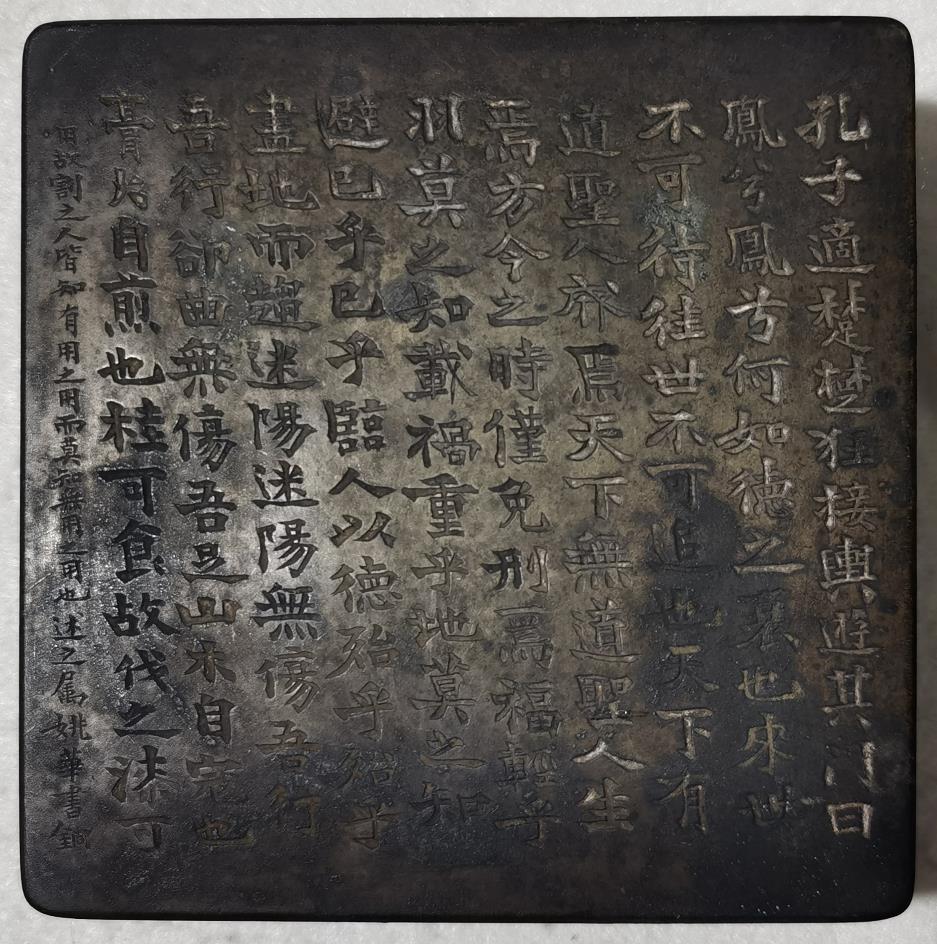 孔子適楚楚狂接輿遊其門曰
鳳兮鳳兮何如德之衰也來世
不可待往世不可追也天下有
道聖人成焉天下無道聖人生
焉方今之時僅免刑焉福輕乎
羽莫之知載禍重乎地莫之知
避已乎已乎臨人以德殆乎殆乎
畫地而趨迷陽迷陽無傷吾行
吾行郤曲無傷吾足山木自寇也
膏火自煎也桂可食故伐之漆可
用故割之人皆知有用之用而莫知無用之用也 之屬姚華書銅